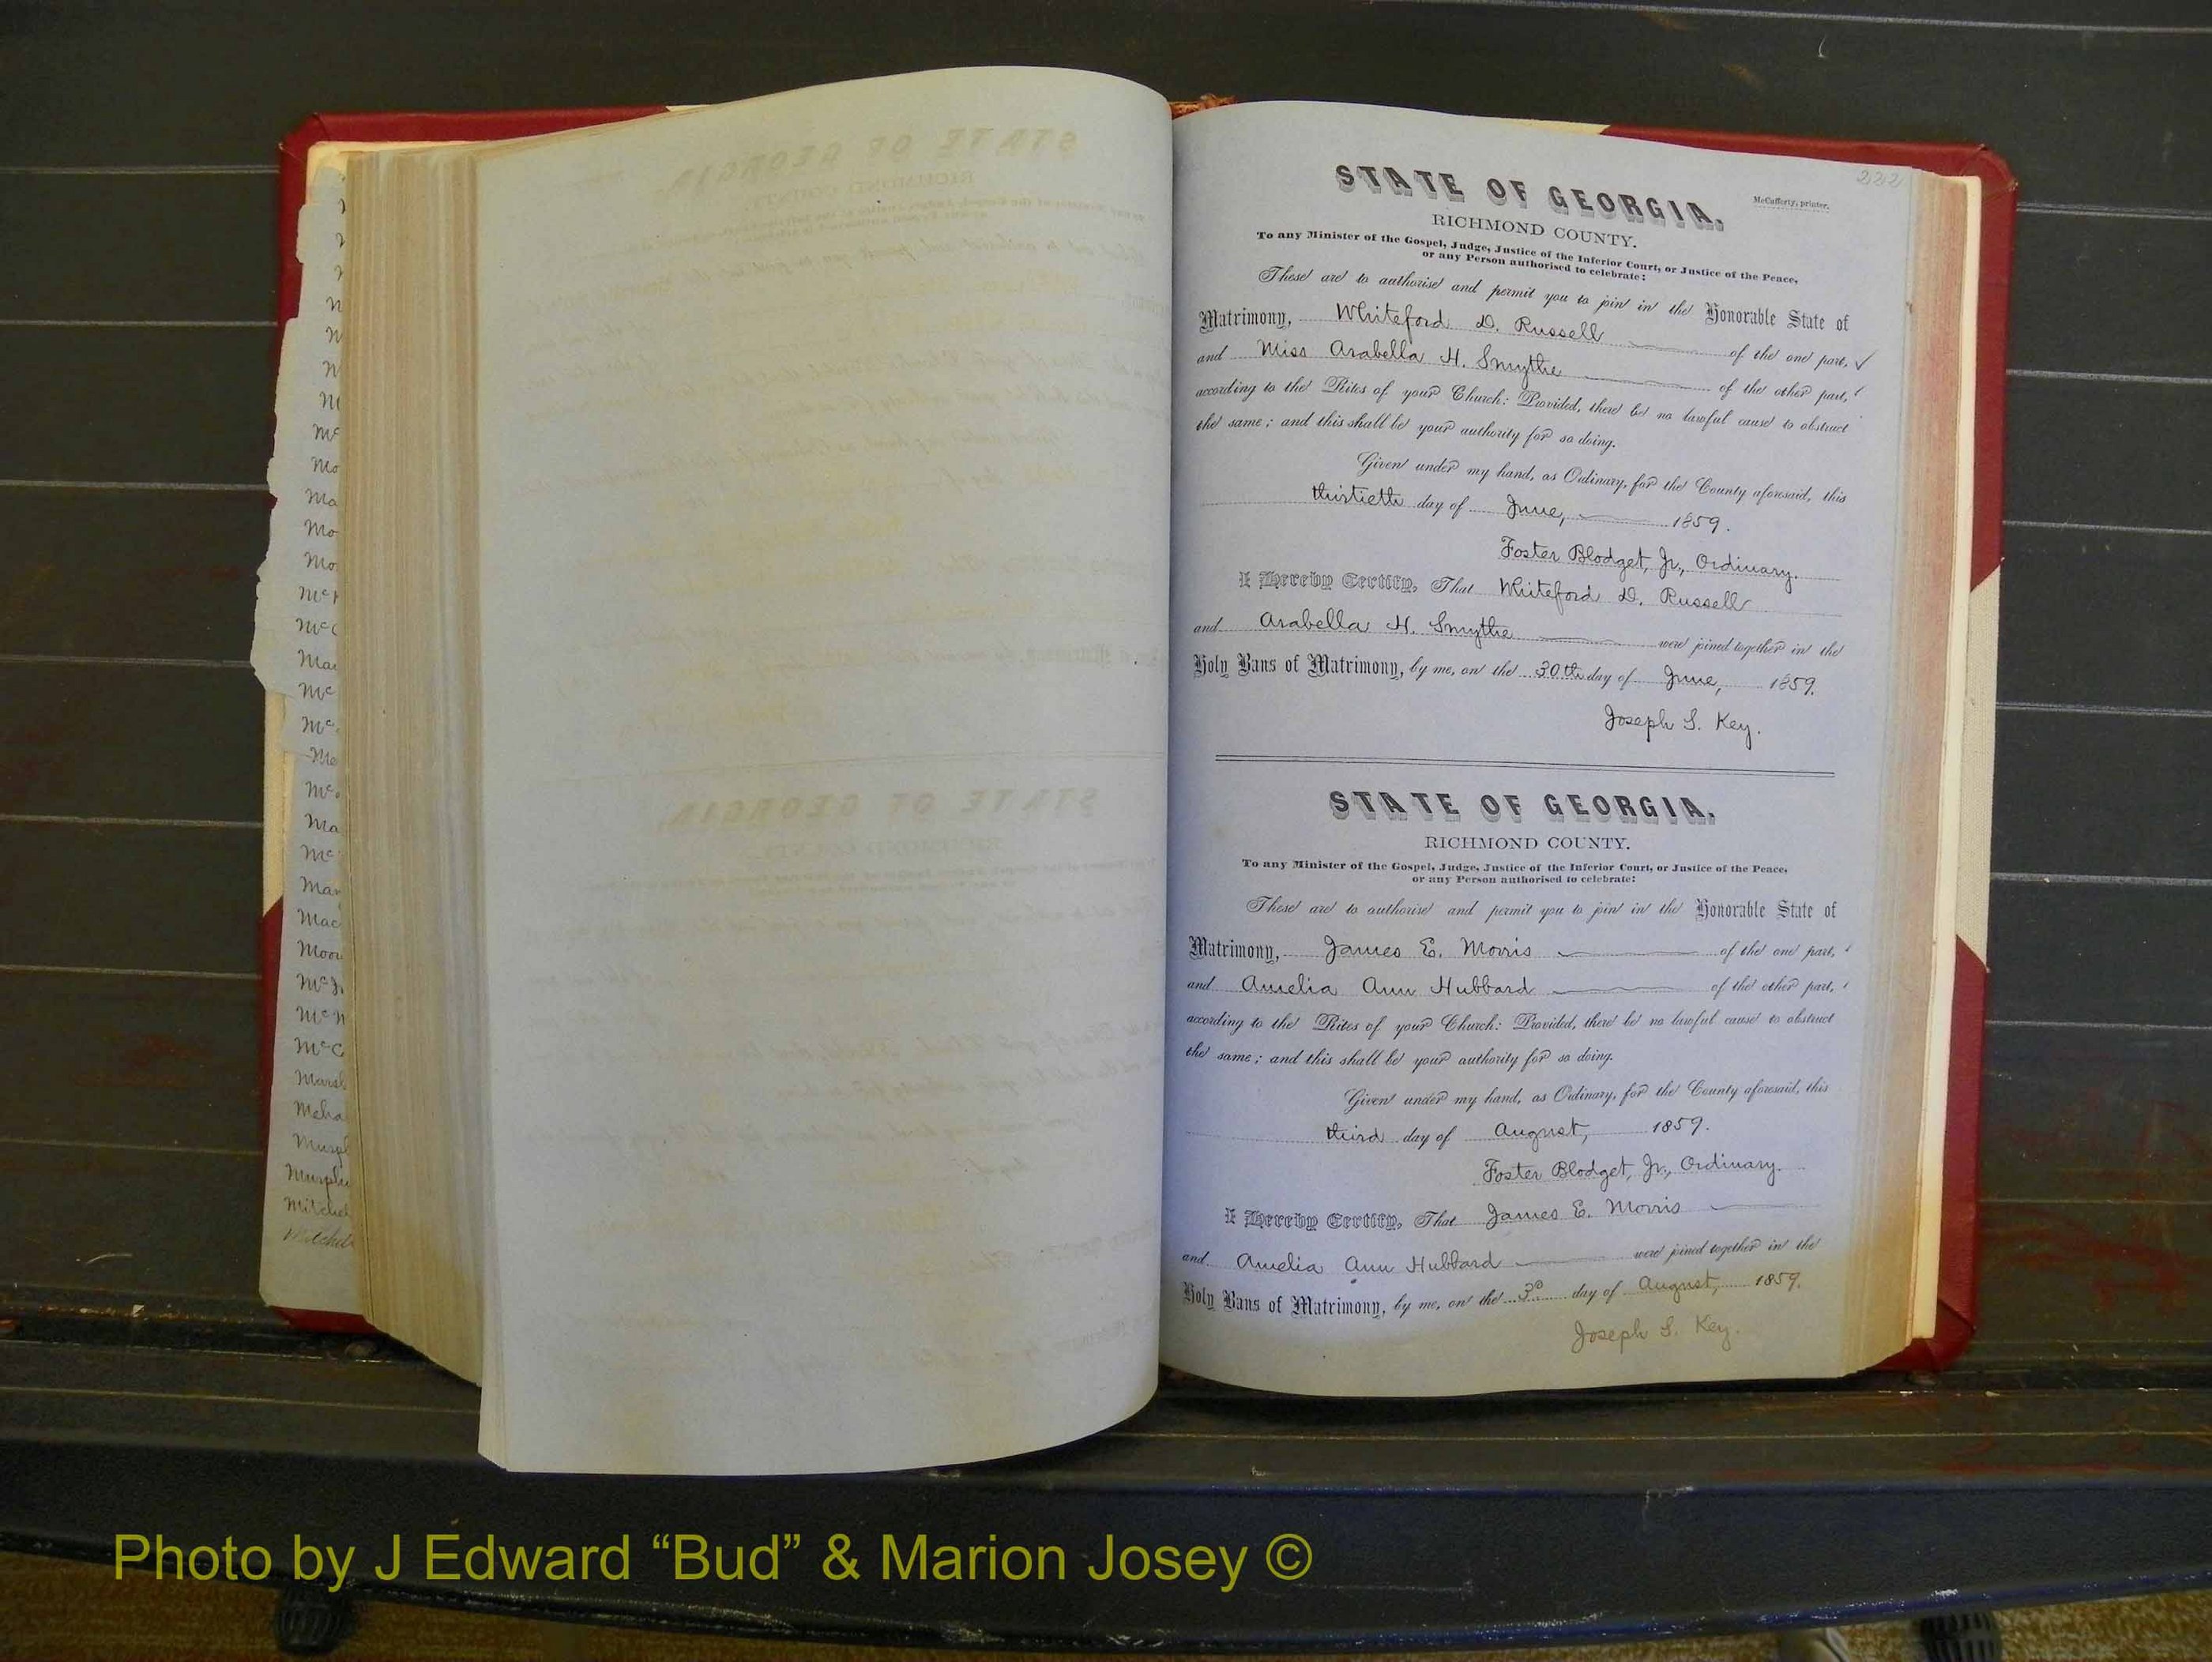 222
McCafferty, printer.
STATE OF GEORGIA,
RICHMOND COUNTY.
To any Minister of the Gospel, Judge, Justice of the Inferior Court, or Justice of the Peace,
or any Person authorised to celebrate:
These are to authorise and permit you to join in the Honorable State of
Matrimony, Whiteford D. Russell of the one part,
and Miss Arabella H. Smythe of the other part,
according to the Rites of your Church: Provided, there be no lawful cause to obstruct
the same; and this shall be your authority for so doing.
Given under my hand, as Ordinary, for the County aforesaid, this
thirtieth day of June, 1859.
Foster Blodget, Jr., Ordinary.
I Hereby Certify, That Whiteford D. Russell
and Arabella H. Smythe were joined together in the
Holy Bans of Matrimony, by me, on the 30th day of June, 1859.
Joseph S. Key.
STATE OF GEORGIA,
RICHMOND COUNTY.
To any Minister of the Gospel, Judge, Justice of the Inferior Court, or Justice of the Peace,
or any Person authorised to celebrate:
These are to authorise and permit you to join in the Honorable State of
Matrimony, James E. Morris of the one part,
and Amelia Ann Hubbard of the other part,
according to the Rites of your Church: Provided, there be no lawful cause to obstruct
the same; and this shall be your authority for so doing.
Given under my hand, as Ordinary, for the County aforesaid, this
third day of August, 1859.
Foster Blodget, Jr., Ordinary.
I Hereby Certify, That James E. Morris
and Amelia Ann Hubbard were joined together in the
Holy Bans of Matrimony, by me, on the 3d day of August, 1859.
Joseph S. Key.
Photo by J Edward “Bud” & Marion Josey ©